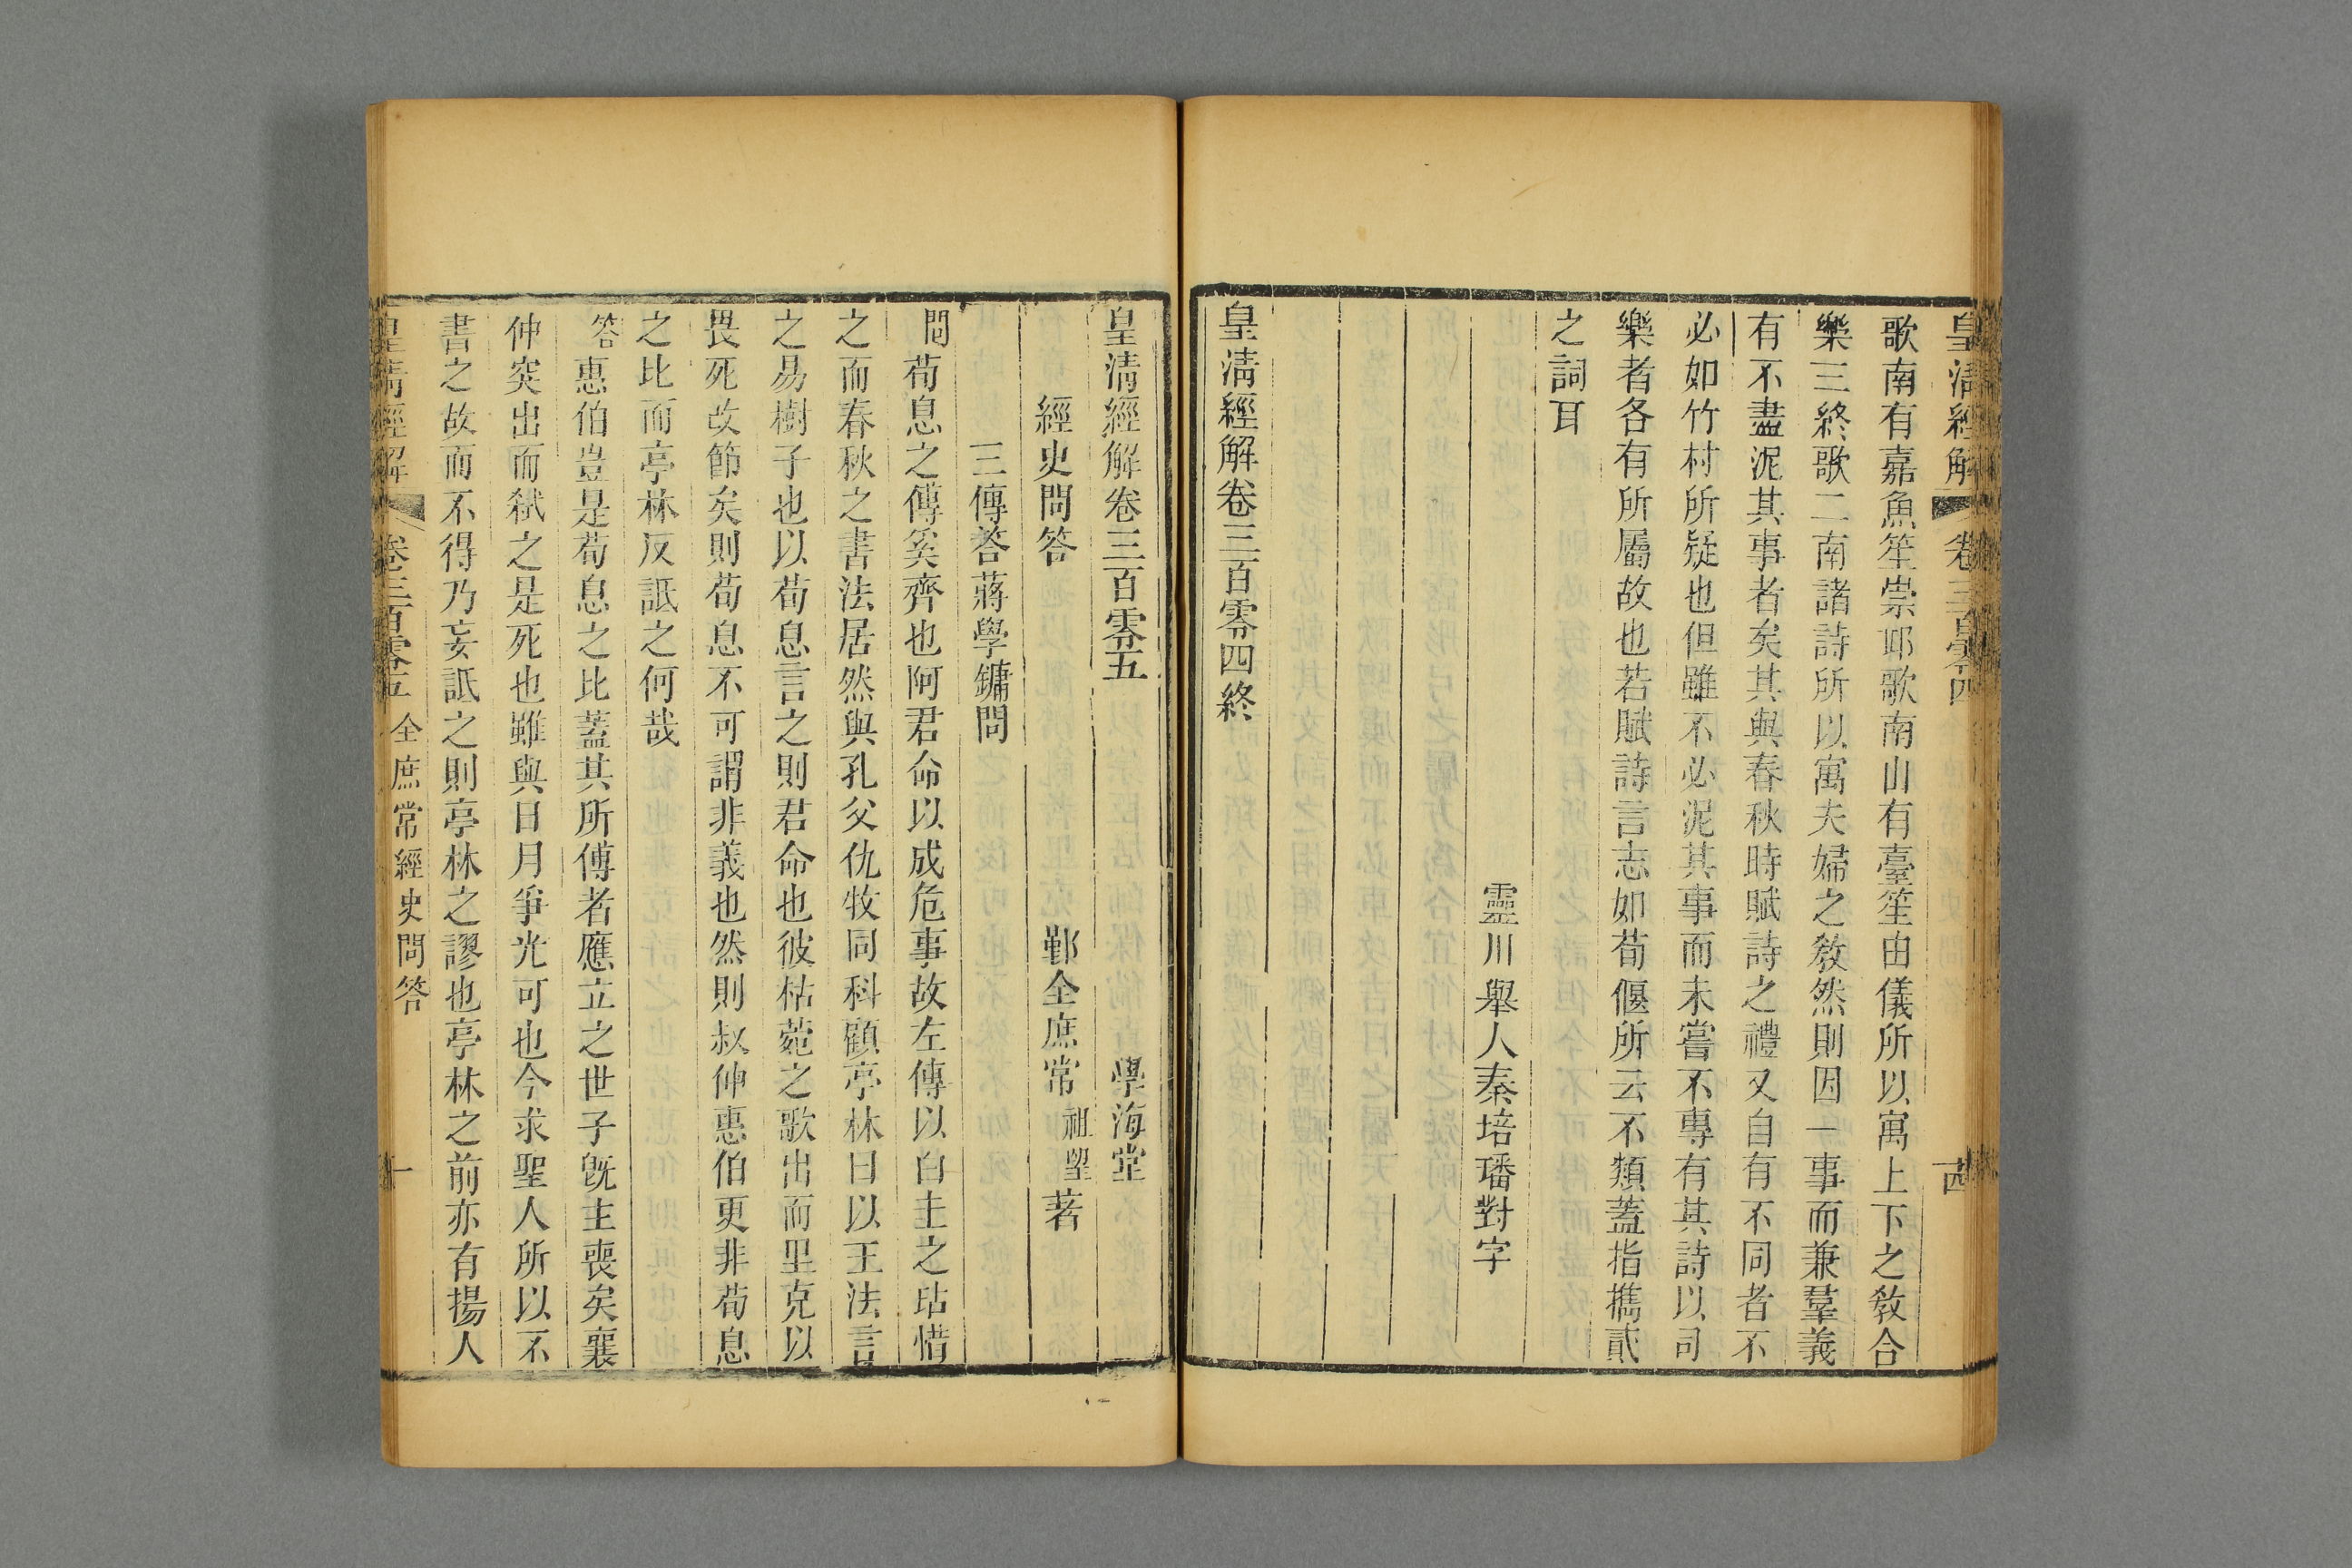 皇清經解 卷三百零四 古
歌南有嘉魚笙崇邱歌南山有臺笙由儀所以寓上下之敎合
樂三終歌二南諸詩所以寓夫婦之敎然則因一事而兼羣義
有不盡泥其事者矣其與春秋時賦詩之禮又自有不同者不
必如竹村所疑也但雖不必泥其事而未嘗不專有其詩以司
樂者各有所屬故也若賦詩言志如荀偃所云不類蓋指攜貳
之詞耳
靈川舉人秦培璠對字
皇淸經解卷三百零四終
皇淸經解卷三百零五 學海堂
經史問答 鄞全庶常祖望著
三傳荅蔣學鏞問
問荀息之傅奚齊也阿君命以成危事故左傳以白圭之玷惜
之而春秋之書法居然與孔父仇牧同科顧亭林曰以王法言
之易樹子也以荀息言之則君命也彼枯菀之歌出而里克以
畏死改節矣則荀息不可謂非義也然則叔仲惠伯更非荀息
之比而亭林反詆之何哉
答惠伯豈是荀息之比蓋其所傅者應立之世子旣主喪矣襄
仲突出而弑之是死也雖與日月爭光可也今求聖人所以不
書之故而不得乃妄詆之則亭林之謬也亭林之前亦有揚人
皇淸經解 卷三百零五 全庶常經史問答 一